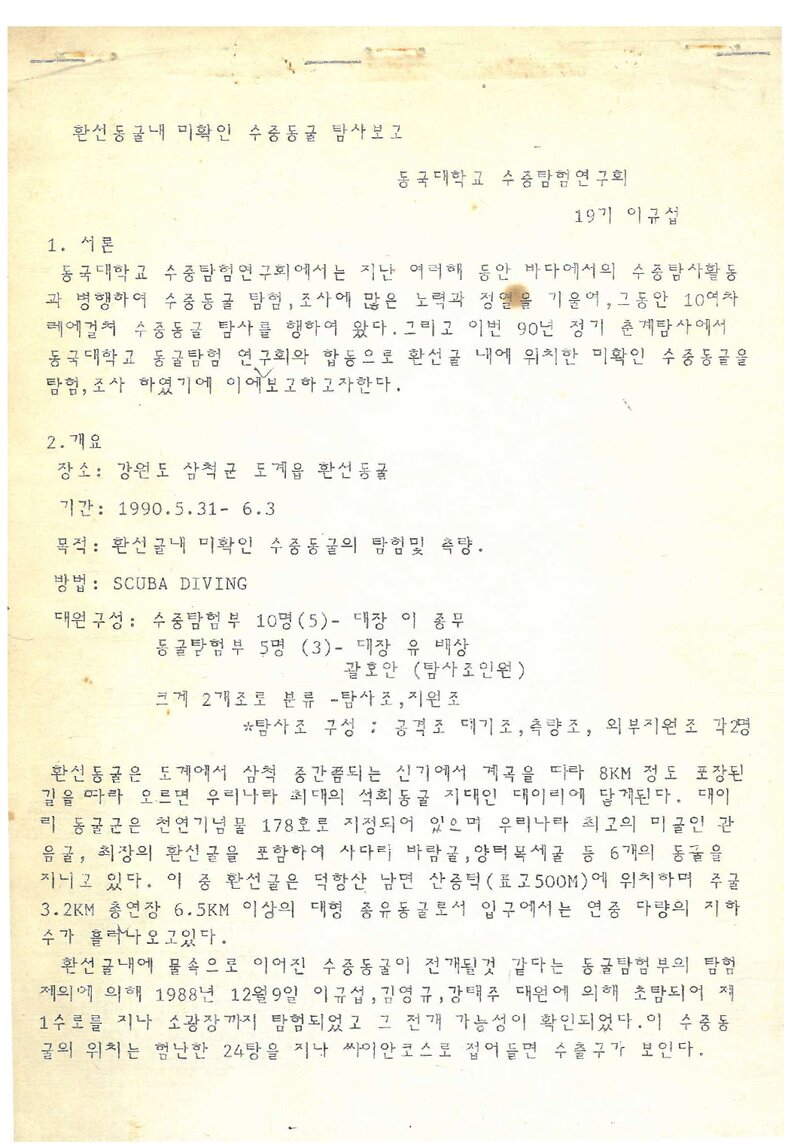 환선동굴내 미확인 수중동굴 탐사보고
동국대학교 수중탐험연구회
19기 이규섭
1. 서론
동국대학교 수중탐험연구회에서는 지난 여러해 동안 바다에서의 수중탐사활동
과 병행하여 수중동굴 탐험,조사에 많은 노력과 정열을 기울여,그동안 10여차
레에걸쳐 수중동굴 탐사를 행하여 왔다.그리고 이번 90년 정기 춘계탐사에서
동국대학교 동굴탐험 연구회와 합동으로 환선굴 내에 위치한 미확인 수중동굴을
탐험,조사 하였기에 이에 보고하고자한다.
2.개요
장소: 강원도 삼척군 도계읍 환선동굴
기간: 1990.5.31- 6.3
목적: 환선굴내 미확인 수중동굴의 탐험및 측량.
방법: SCUBA DIVING
대원구성: 수중탐험부 10명(5)- 대장 이 종무
동굴탐험부 5명 (3)- 대장 유 배상
괄호안 (탐사조인원)
크게 2개조로 분류 -탐사조,지원조
*탐사조 구성 : 공격조 대기조,측량조, 외부지원조 각2명
환선동굴은 도계에서 삼척 중간쯤되는 신기에서 계곡을 따라 8KM 정도 포장된
길을 따라 오르면 우리나라 최대의 석회동굴 지대인 대이리에 닿게된다. 대이
리 동굴군은 천연기념물 178호로 지정되어 있으며 우리나라 최고의 미굴인 관
음굴, 최장의 환선굴을 포함하여 사다리 바람굴,양터목세굴 등 6개의 동굴을
지니고 있다. 이 중 환선굴은 덕항산 남면 산중턱(표고500M)에 위치하며 주굴
3.2KM 총연장 6.5KM 이상의 대형 종유동굴로서 입구에서는 연중 다량의 지하
수가 흘러나오고있다.
환선굴내에 물속으로 이어진 수중동굴이 전개될것 같다는 동굴탐험부의 탐험
제의에 의해 1988년 12월9일 이규섭,김영규,강태주 대원에 의해 초탐되어 제
1수로를 지나 소광장까지 탐험되었고 그 전개 가능성이 확인되었다.이 수중동
굴의 위치는 험난한 24탕을 지나 싸이안코스로 접어들면 수출구가 보인다.